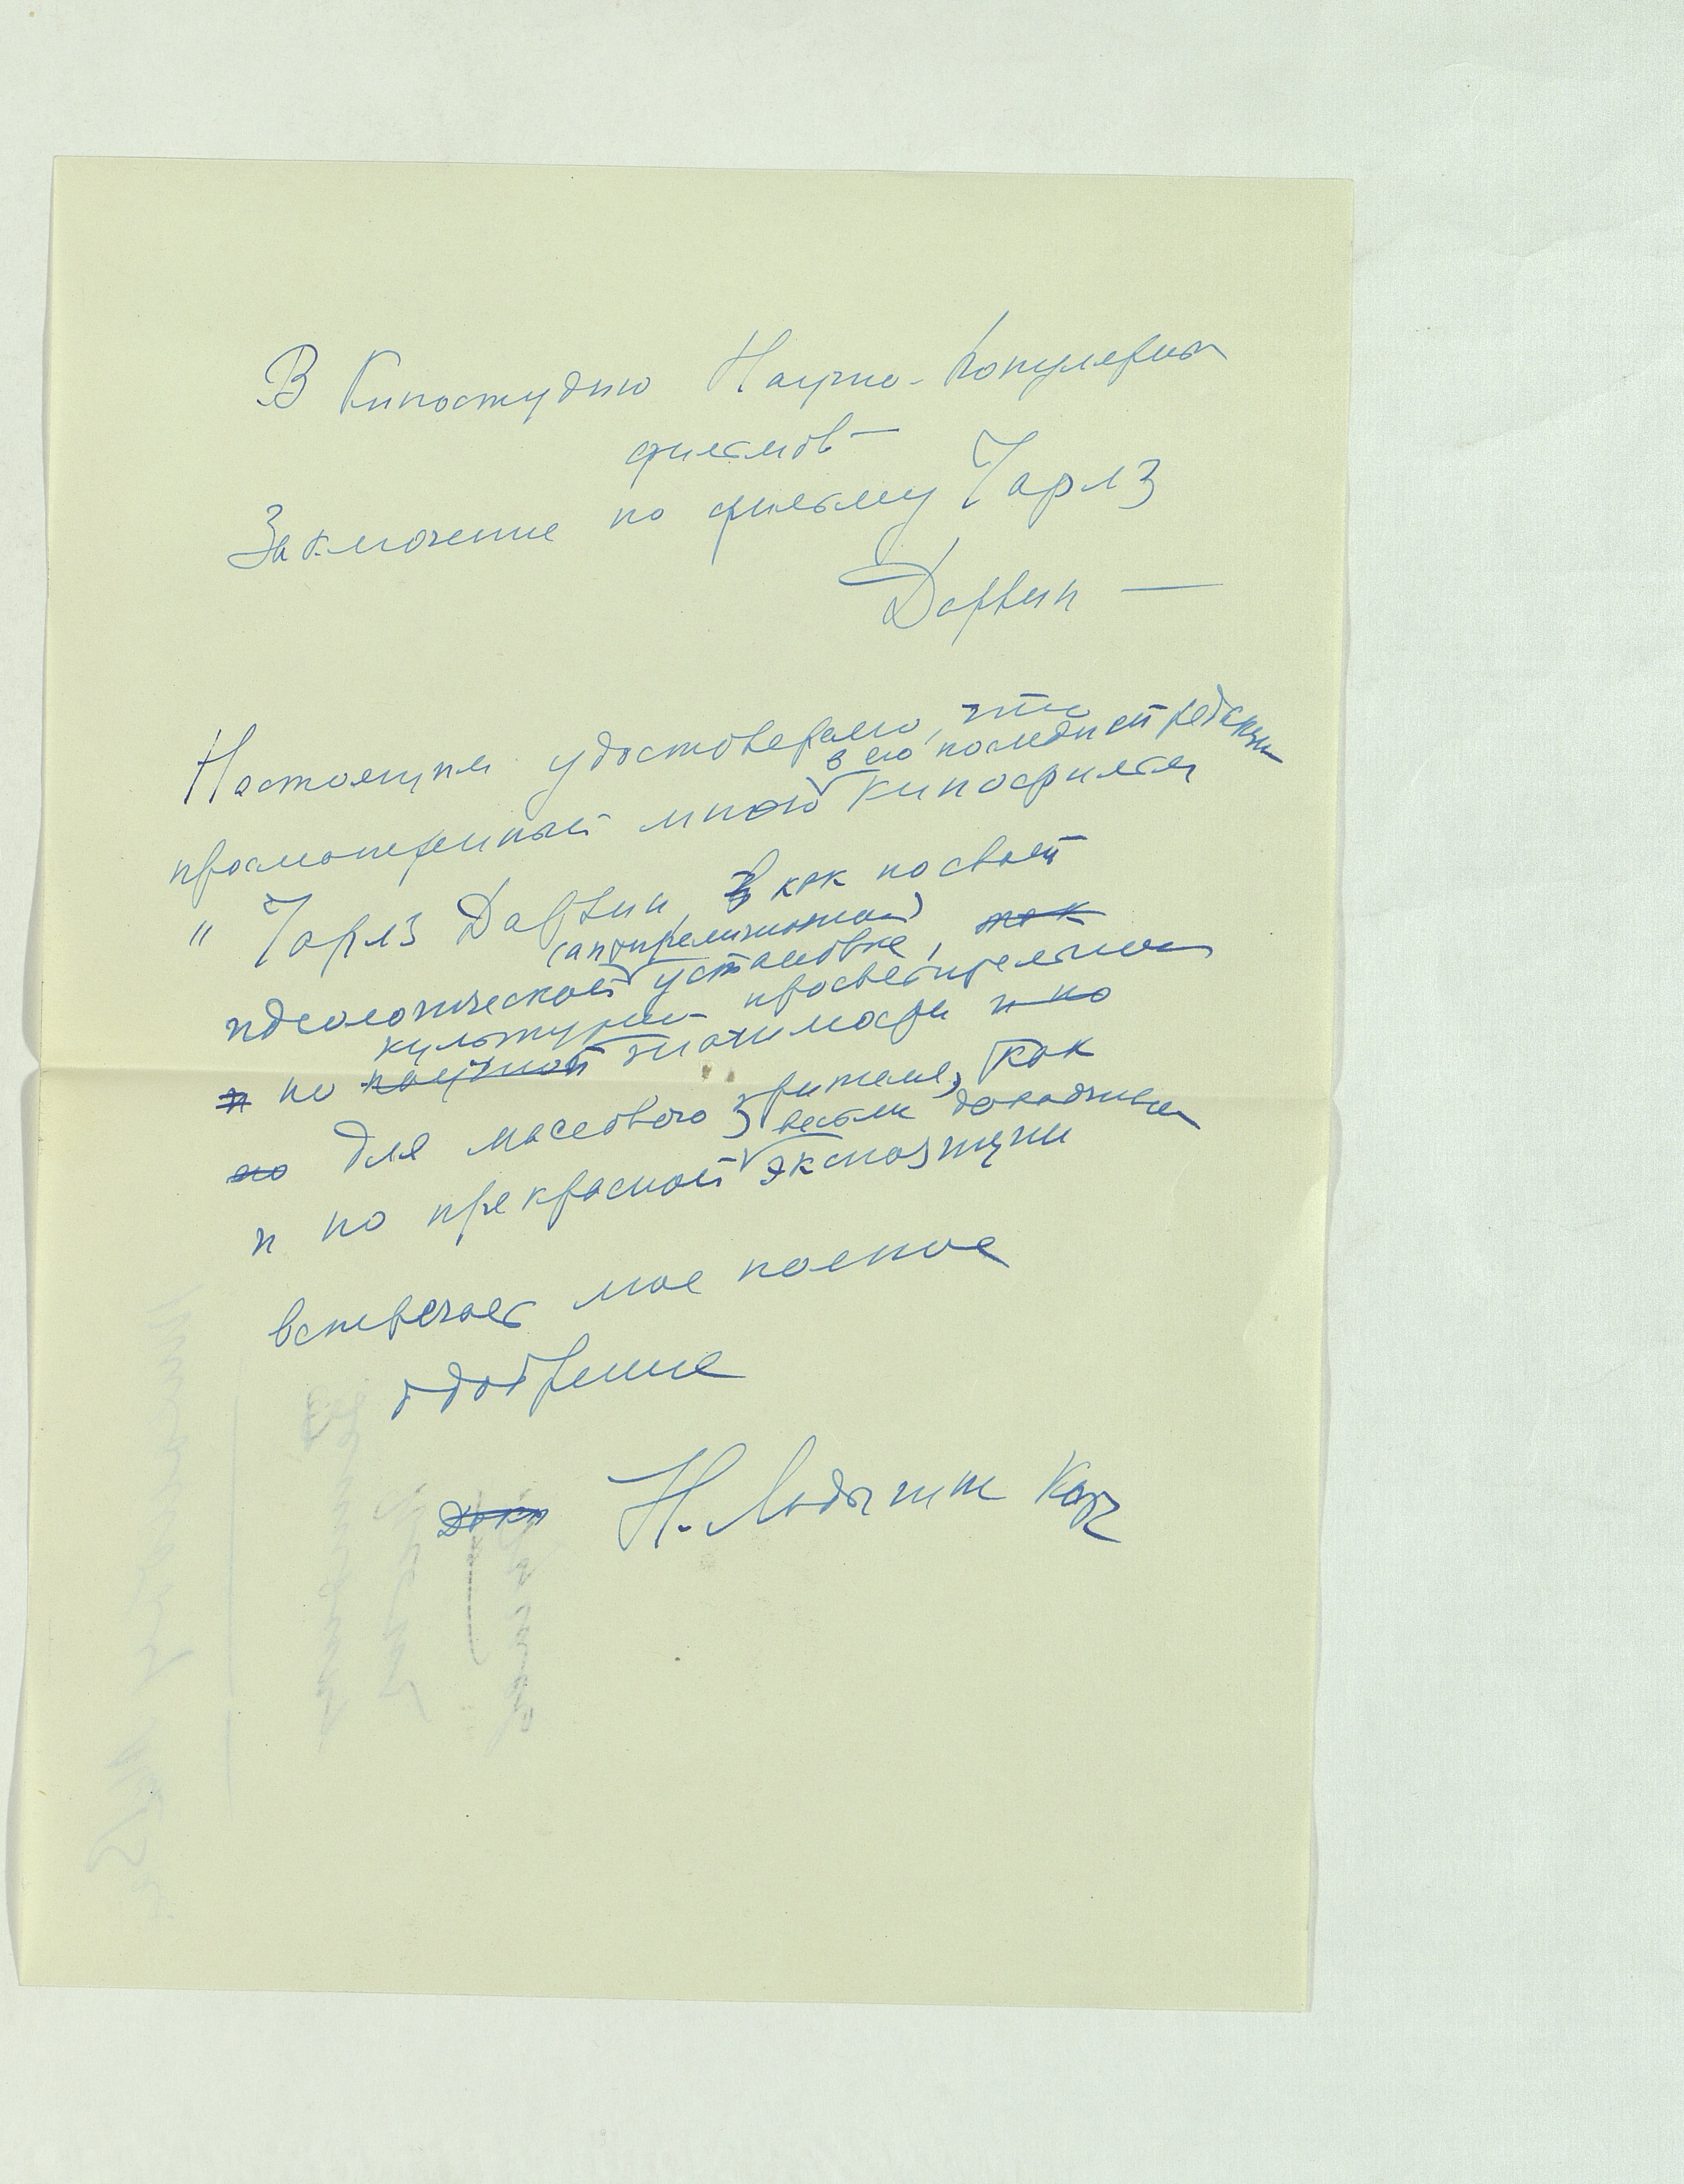 В Киностудию Научно-популярных
фильмов —
Заключение по фильму Чарлз
Дарвин —
Настоящим удостоверяю, что
в его последней редакции
просмотренный мною кинофильм
" Чарлз Дарвин как по своей
(антирелигиозной)
идеологической установке, так
культурно просветительной
и по научной значимости и по
по для массового зрителя, так
весьма доходчивой
и по прекрасной экспозиции
встречает мое полное
одобрение
Н. Ладыгина Котс